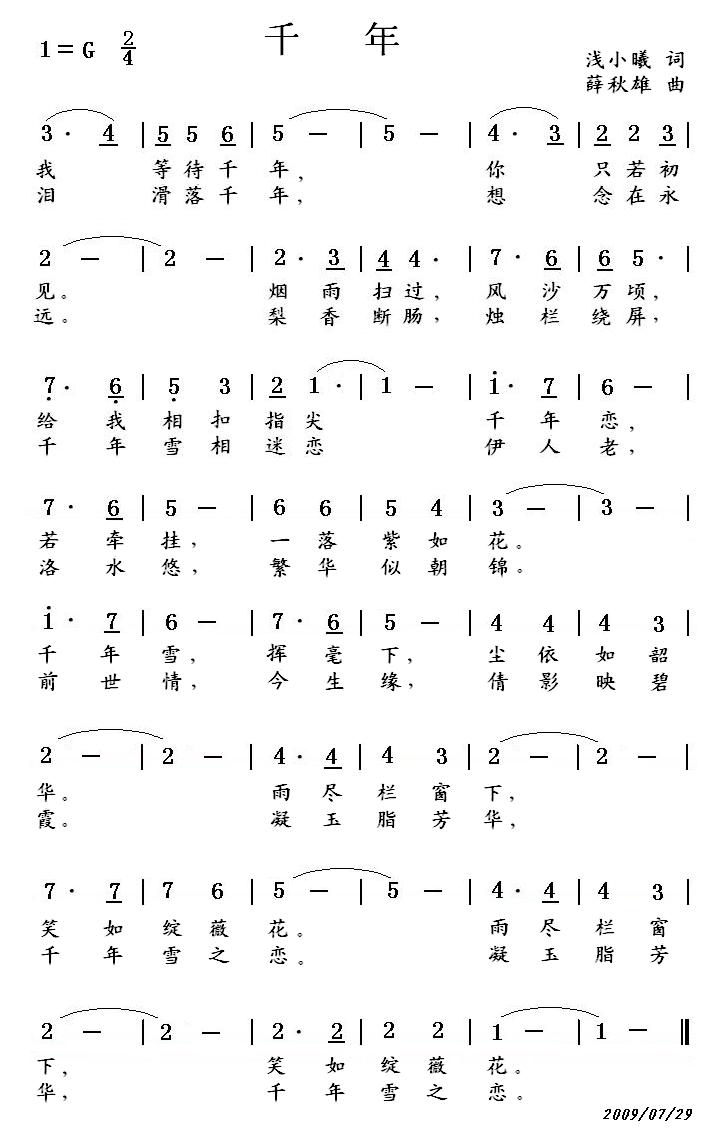 千 年
1=G 2/4
浅小曦 词
薛秋雄 曲
3· 4 | 5 5 6 | 5 － | 5 － | 4· 3 | 2 2 3 |
我 等待千 年， 你 只若初
泪 滑落千 年， 想 念在永
2 － | 2 － | 2· 3 | 4 4· | 7· 6 | 6 5· |
见。 烟 雨 扫过， 风 沙 万 顷，
远。 梨 香 断肠， 烛 栏 绕 屏，
7· 6 | 5 3 | 2 1· | 1 － | 1· 7 | 6 － |
给 我 相 扣 指 尖 千 年 恋，
千 年 雪 相 迷 恋 伊 人 老，
7· 6 | 5 － | 6 6 | 5 4 | 3 － | 3 － |
若 牵 挂， 一 落 紫 如 花。
洛 水 悠， 繁 华 似 朝 锦。
1· 7 | 6 － | 7· 6 | 5 － | 4 4 | 4 3 |
千 年 雪， 挥 毫 下， 尘 依 如 韶
前 世 情， 今 生 缘， 倩 影 映 碧
2 － | 2 － | 4· 4 | 4 3 | 2 － | 2 － |
华。 雨 尽 栏 窗 下，
霞。 凝 玉 脂 芳 华，
7· 7 | 7 6 | 5 － | 5 － | 4· 4 | 4 3 |
笑 如 绽 薇 花。 雨 尽 栏 窗
千 年 雪 之 恋。 凝 玉 脂 芳
2 － | 2 － | 2· 2 | 2 2 | 1 － | 1 － ‖
下， 笑 如 绽 薇 花。
华， 千 年 雪 之 恋。
2009/07/29